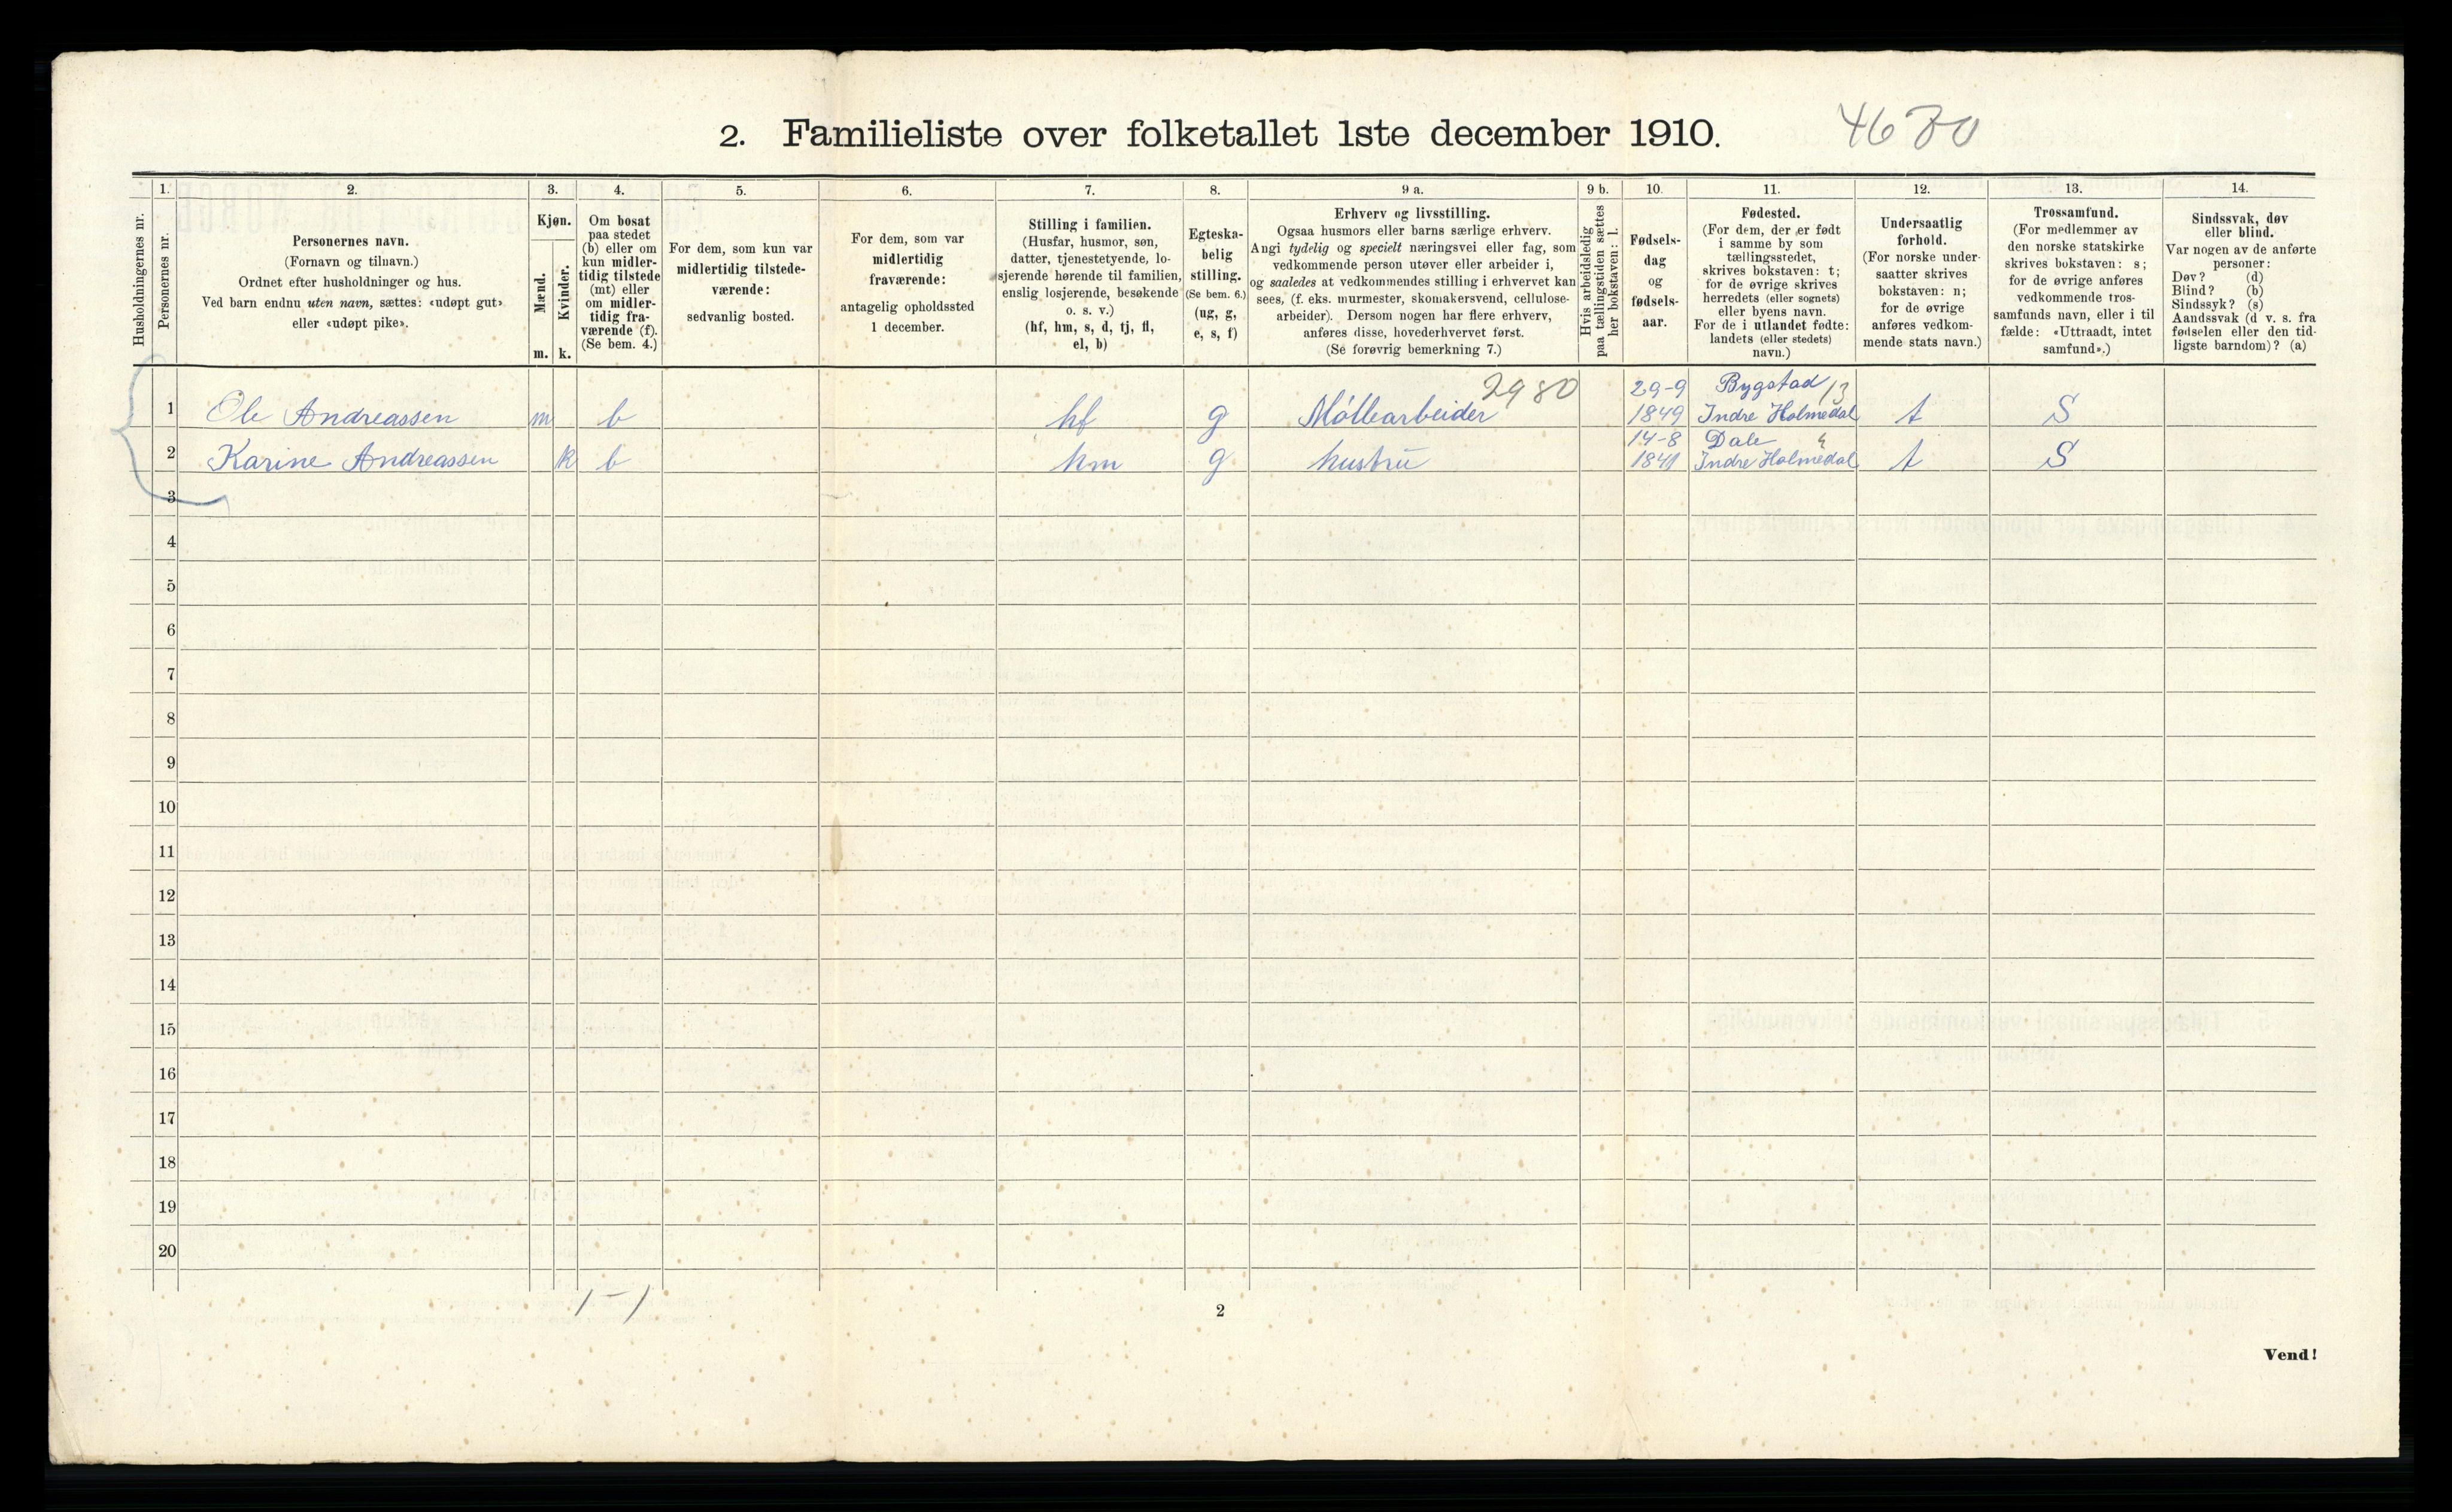 2. Familieliste over folketallet 1ste december 1910.
4680
Husholdningernes nr.
1.
Personernes nr.
2.
Personernes navn.
(Fornavn og tilnavn.)
Ordnet efter husholdninger og hus.
Ved barn endnu uten navn, sættes: «udøpt gut»
eller «udøpt pike».
3.
Kjøn.
Mænd.
m.
Kvinder.
k.
4.
Om bosat
paa stedet
(b) eller om
kun midler-
tidig tilstede
(mt) eller
om midler-
tidig fra-
værende (f).
(Se bem. 4.)
5.
For dem, som kun var
midlertidig tilstede-
værende:
sedvanlig bosted.
6.
For dem, som var
midlertidig
fraværende:
antagelig opholdssted
1 december.
7.
Stilling i familien.
(Husfar, husmor, søn,
datter, tjenestetyende, lo-
sjerende hørende til familien,
enslig losjerende, besøkende
o. s. v.)
(hf, hm, s, d, tj, fl,
el, b)
8.
Egteska-
belig
stilling.
(Se bem. 6.)
(ug, g,
e, s, f)
9 a.
Erhverv og livsstilling.
Ogsaa husmors eller barns særlige erhverv.
Angi tydelig og specielt næringsvei eller fag, som
vedkommende person utøver eller arbeider i,
og saaledes at vedkommendes stilling i erhvervet kan
sees, (f. eks. murmester, skomakersvend, cellulose-
arbeider). Dersom nogen har flere erhverv,
anføres disse, hovederhvervet først.
(Se forøvrig bemerkning 7.)
9 b.
Hvis arbeidsledig
paa tællingstiden sættes
her bokstaven: l.
10.
Fødsels-
dag
og
fødsels-
aar.
11.
Fødested.
(For dem, der er født
i samme by som
tællingsstedet,
skrives bokstaven: t;
for de øvrige skrives
herredets (eller sognets)
eller byens navn.
For de i utlandet fødte:
landets (eller stedets)
navn.)
12.
Undersaatlig
forhold.
(For norske under-
saatter skrives
bokstaven: n;
for de øvrige
anføres vedkom-
mende stats navn.)
13.
Trossamfund.
(For medlemmer av
den norske statskirke
skrives bokstaven: s;
for de øvrige anføres
vedkommende tros-
samfunds navn, eller i til
fælde: «Uttraadt, intet
samfund».)
14.
Sindssvak, døv
eller blind.
Var nogen av de anførte
personer:
Døv? (d)
Blind? (b)
Sindssyk? (s)
Aandssvak (d v. s. fra
fødselen eller den tid-
ligste barndom)? (a)
2980 29-9 Bygstad 13
1 Ole Andreassen m b hf g Møllearbeider 1849 Indre Holmedal t S
14-8 Dale
2 Karine Andreassen k b hm g hustru 1841 Indre Holmedal t S
3
4
5
6
7
8
9
10
11
12
13
14
15
16
17
18
19
20
1-1
2
Vend!